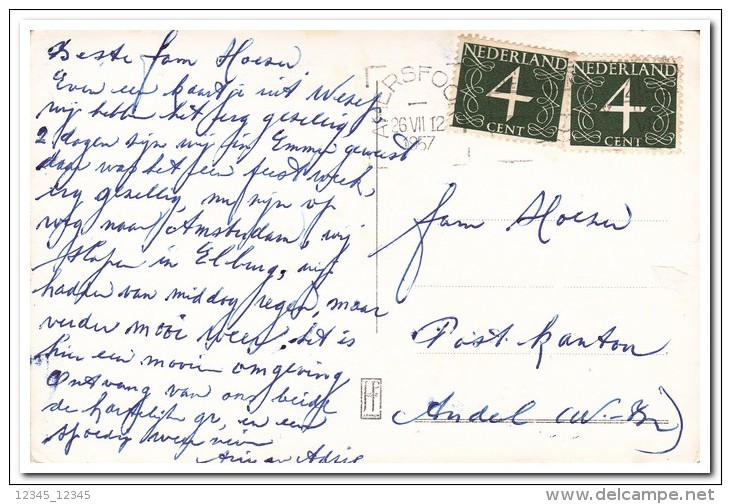 Beste fam Hoeser
Even een kaartje uit Wezep
wij hebben het erg gezellig
2 dagen zijn wij in Emmen geweest
daar was het een feest week,
erg gezellig, nu zijn op
weg naar Amsterdam, wij
slapen in Elburg, wij
hadden van middag regen, maar
verder mooi weer, het is
hier een mooie omgeving
Ontvang van ons beide
de hartelijk gr, en een
spoedig weer zien
Arie en Adrie
NEDERLAND
4
CENT
NEDERLAND
4
CENT
AMERSFOO
26 VII 12
1957
fam Hoeser
Postkantoor
Andel (N.-Br)
12345_12345
©delcampe.net